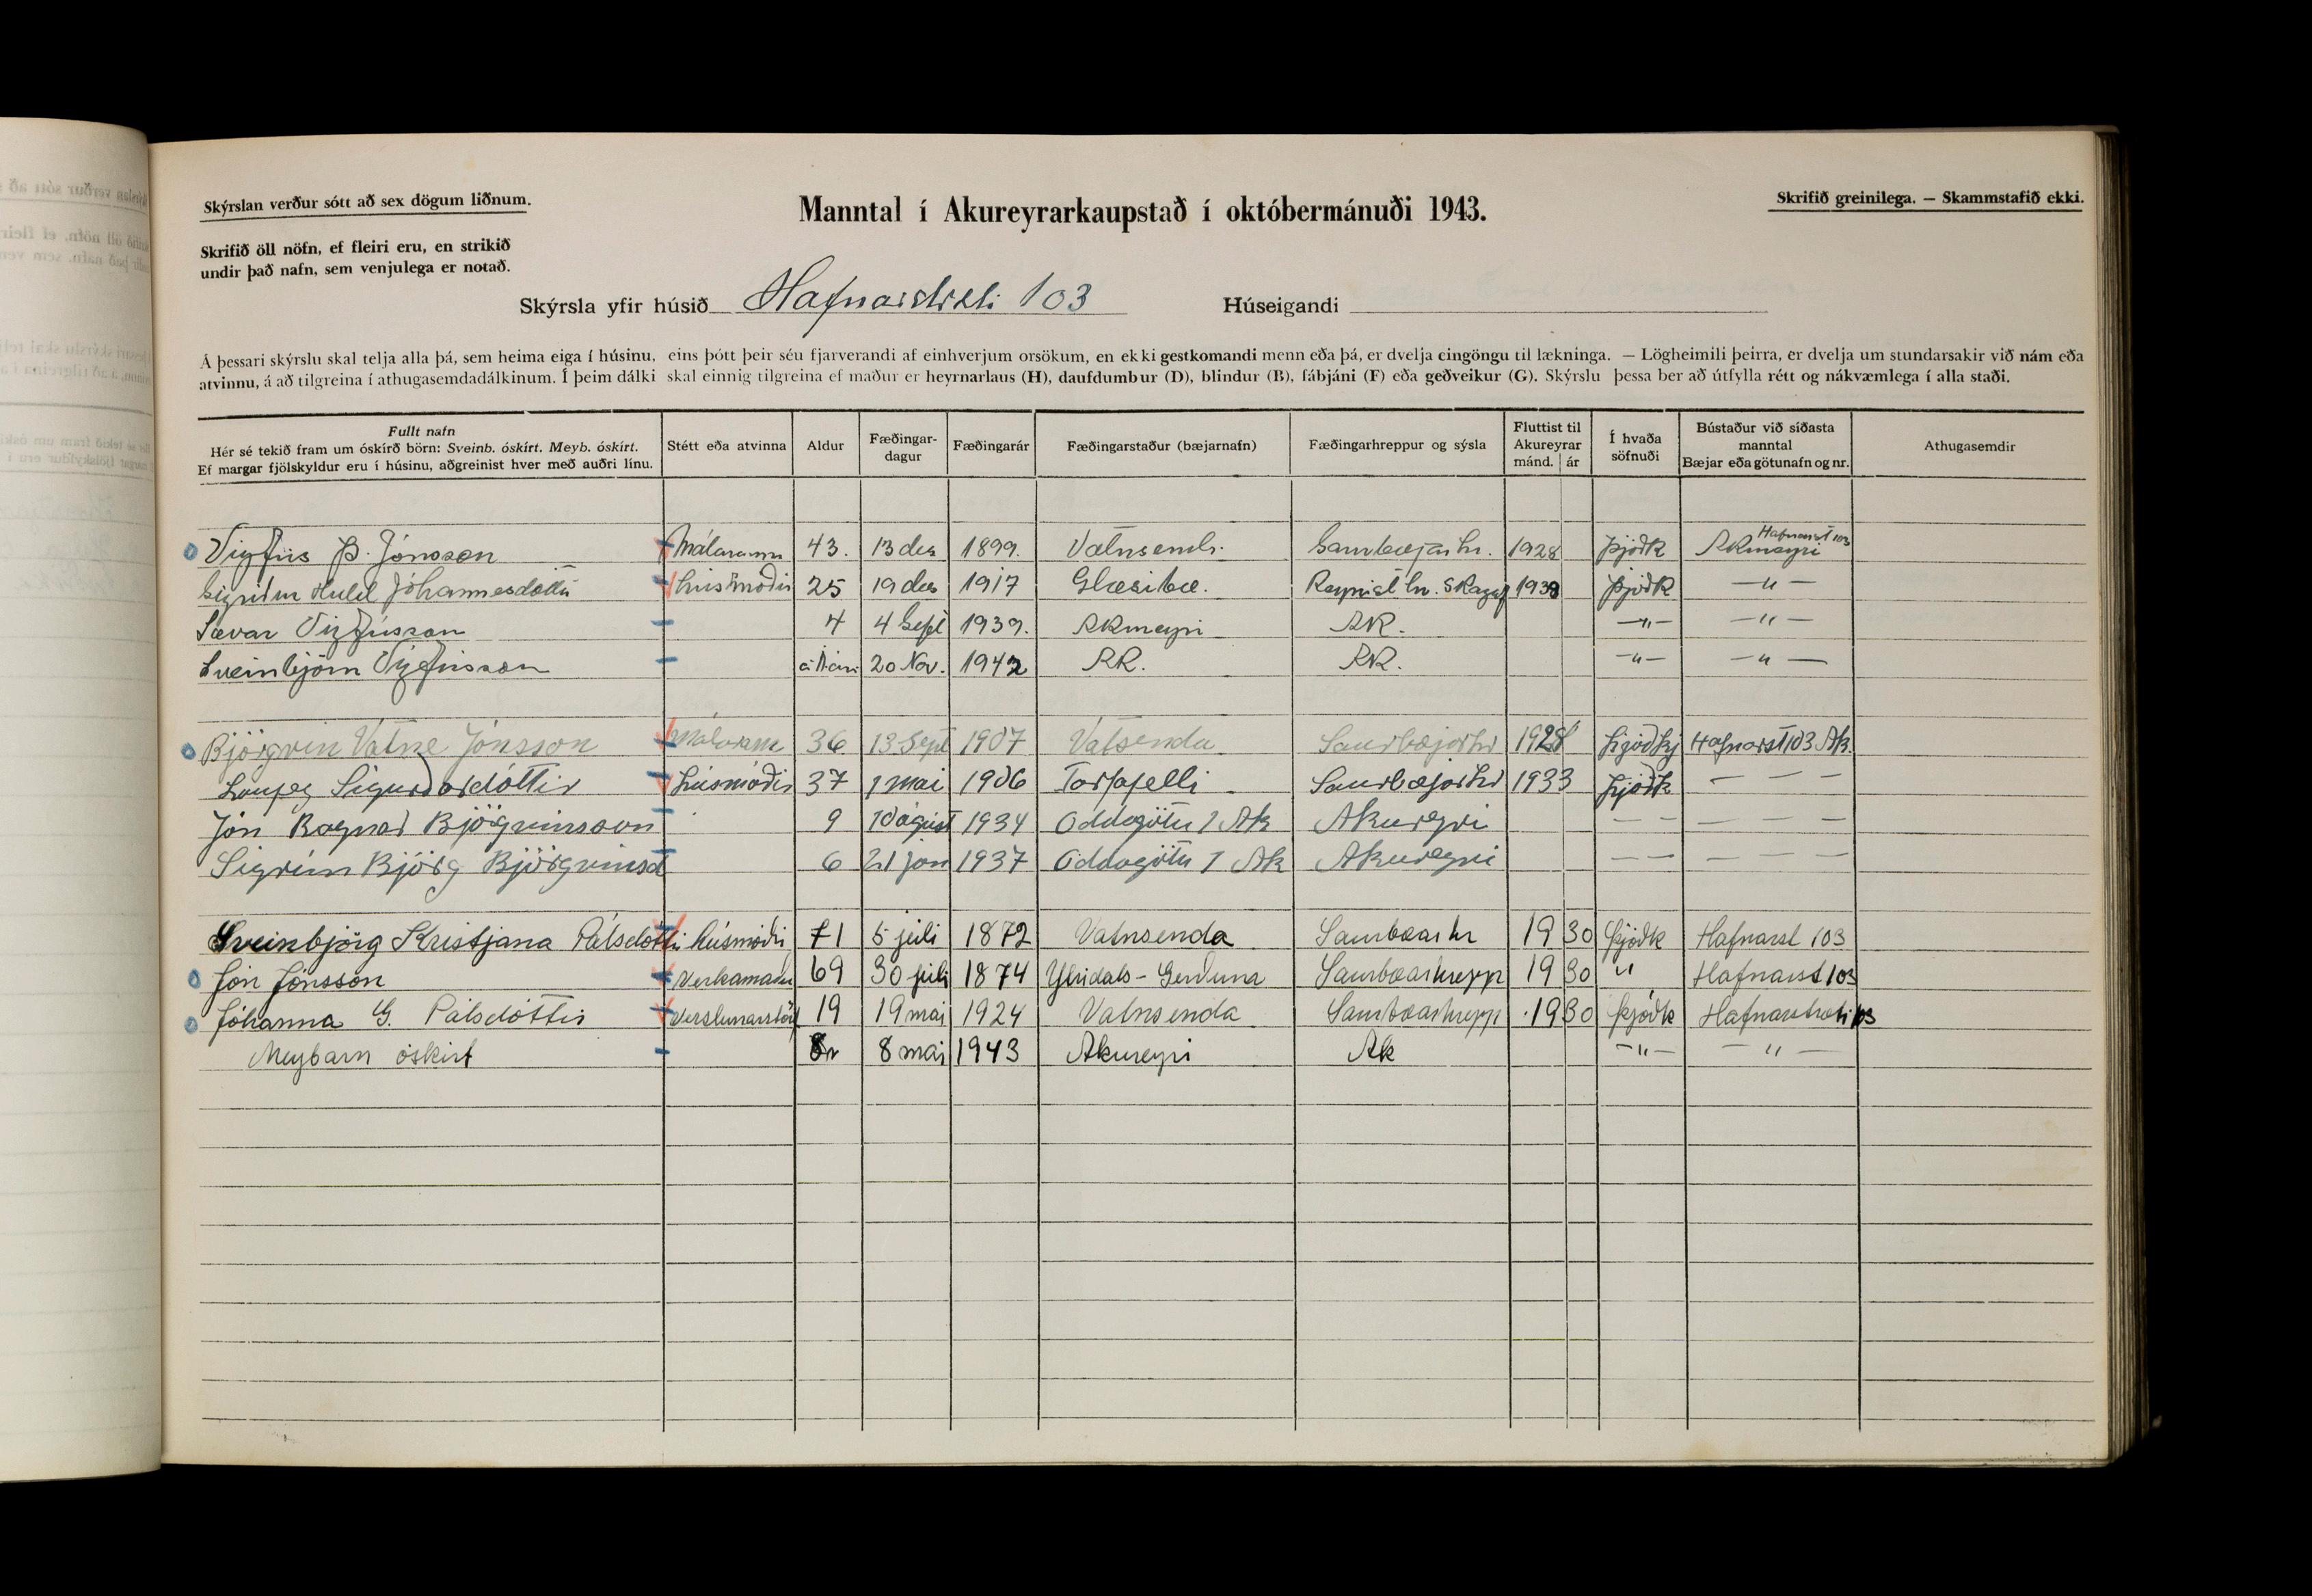 Skýrslan verður sótt að sex dögum liðnum.
Manntal í Akureyrarkaupstað í októbermánuði 1943.
Skrifið greinilega. — Skammstafið ekki.
Skrifið öll nöfn, ef fleiri eru, en strikið
undir það nafn, sem venjulega er notað.
Skýrsla yfir húsið Hafnarstræti 103 Húseigandi
Á þessari skýrslu skal telja alla þá, sem heima eiga í húsinu, eins þótt þeir séu fjarverandi af einhverjum orsökum, en ekki gestkomandi menn eða þá, er dvelja eingöngu til lækninga. — Lögheimili þeirra, er dvelja um stundarsakir við nám eða
atvinnu, á að tilgreina í athugasemdadálkinum. Í þeim dálki skal einnig tilgreina ef maður er heyrnarlaus (H), daufdumbur (D), blindur (B), fábjáni (F) eða geðveikur (G). Skýrslu þessa ber að útfylla rétt og nákvæmlega í alla staði.
Fullt nafn
Hér sé tekið fram um óskírð börn: Sveinb. óskírt. Meyb. óskírt.
Ef margar fjölskyldur eru í húsinu, aðgreinist hver með auðri línu.
Stétt eða atvinna
Aldur
Fæðingar-
dagur
Fæðingarár
Fæðingarstaður (bæjarnafn)
Fæðingarhreppur og sýsla
Fluttist til
Akureyrar
mánd. ár
Í hvaða
söfnuði
Bústaður við síðasta
manntal
Bæjar eða götunafn og nr.
Athugasemdir
Vigfús Þ. Jónsson Málaram 43. 13 des 1899. Vatnsenda. Saurbæjarhr. 1928 Þjóðk Akureyri Hafnarst 103
Sigríður Huld Jóhannesdóttir húsmóðir 25 19 des 1917 Glæsibæ. Reynist hr. Skagaf 1938 Þjóðk — " —
Sævar Vigfússon 4 4 Sept 1939. Akureyri AK. — " — — " —
Sveinbjörn Vigfússon 20 Nov. 1942 AK. AK. — " — — " —
Björgvin Vatne Jónsson Málaram 36 13 Sept 1907 Vatsenda Saurbæjarhr 1928 Þjóðkj Hafnarst 103 Ak.
Laufey Sigurðardóttir húsmóðir 37 1 mai 1906 Torfafelli Saurbæjarhr 1933 Þjóðk — — —
Jón Ragnar Björgvinsson 9 10 ágúst 1934 Oddagötu 7 Ak Akureyri — — — — —
Sigrún Björg Björgvinsd 6 21 jan 1937 Oddagötu 7 Ak Akureyri — — — — —
Sveinbjörg Kristjana Pálsdóttir húsmóðir 71 5 júli 1872 Vatnsenda Saurbæarhr 1930 Þjóðk Hafnarst 103
Jón Jónsson Verkamaður 69 30 júli 1874 Saurbæarhrepp 1930 " Hafnarst 103
Jóhanna G. Pálsdóttir Verslunarstörf 19 19 mai 1924 Vatnsenda Saurbæarhrepp 1930 Þjóðk Hafnarstræti 103
Meybarn óskirt 8 mai 1943 Akureyri Ak — " — — " —